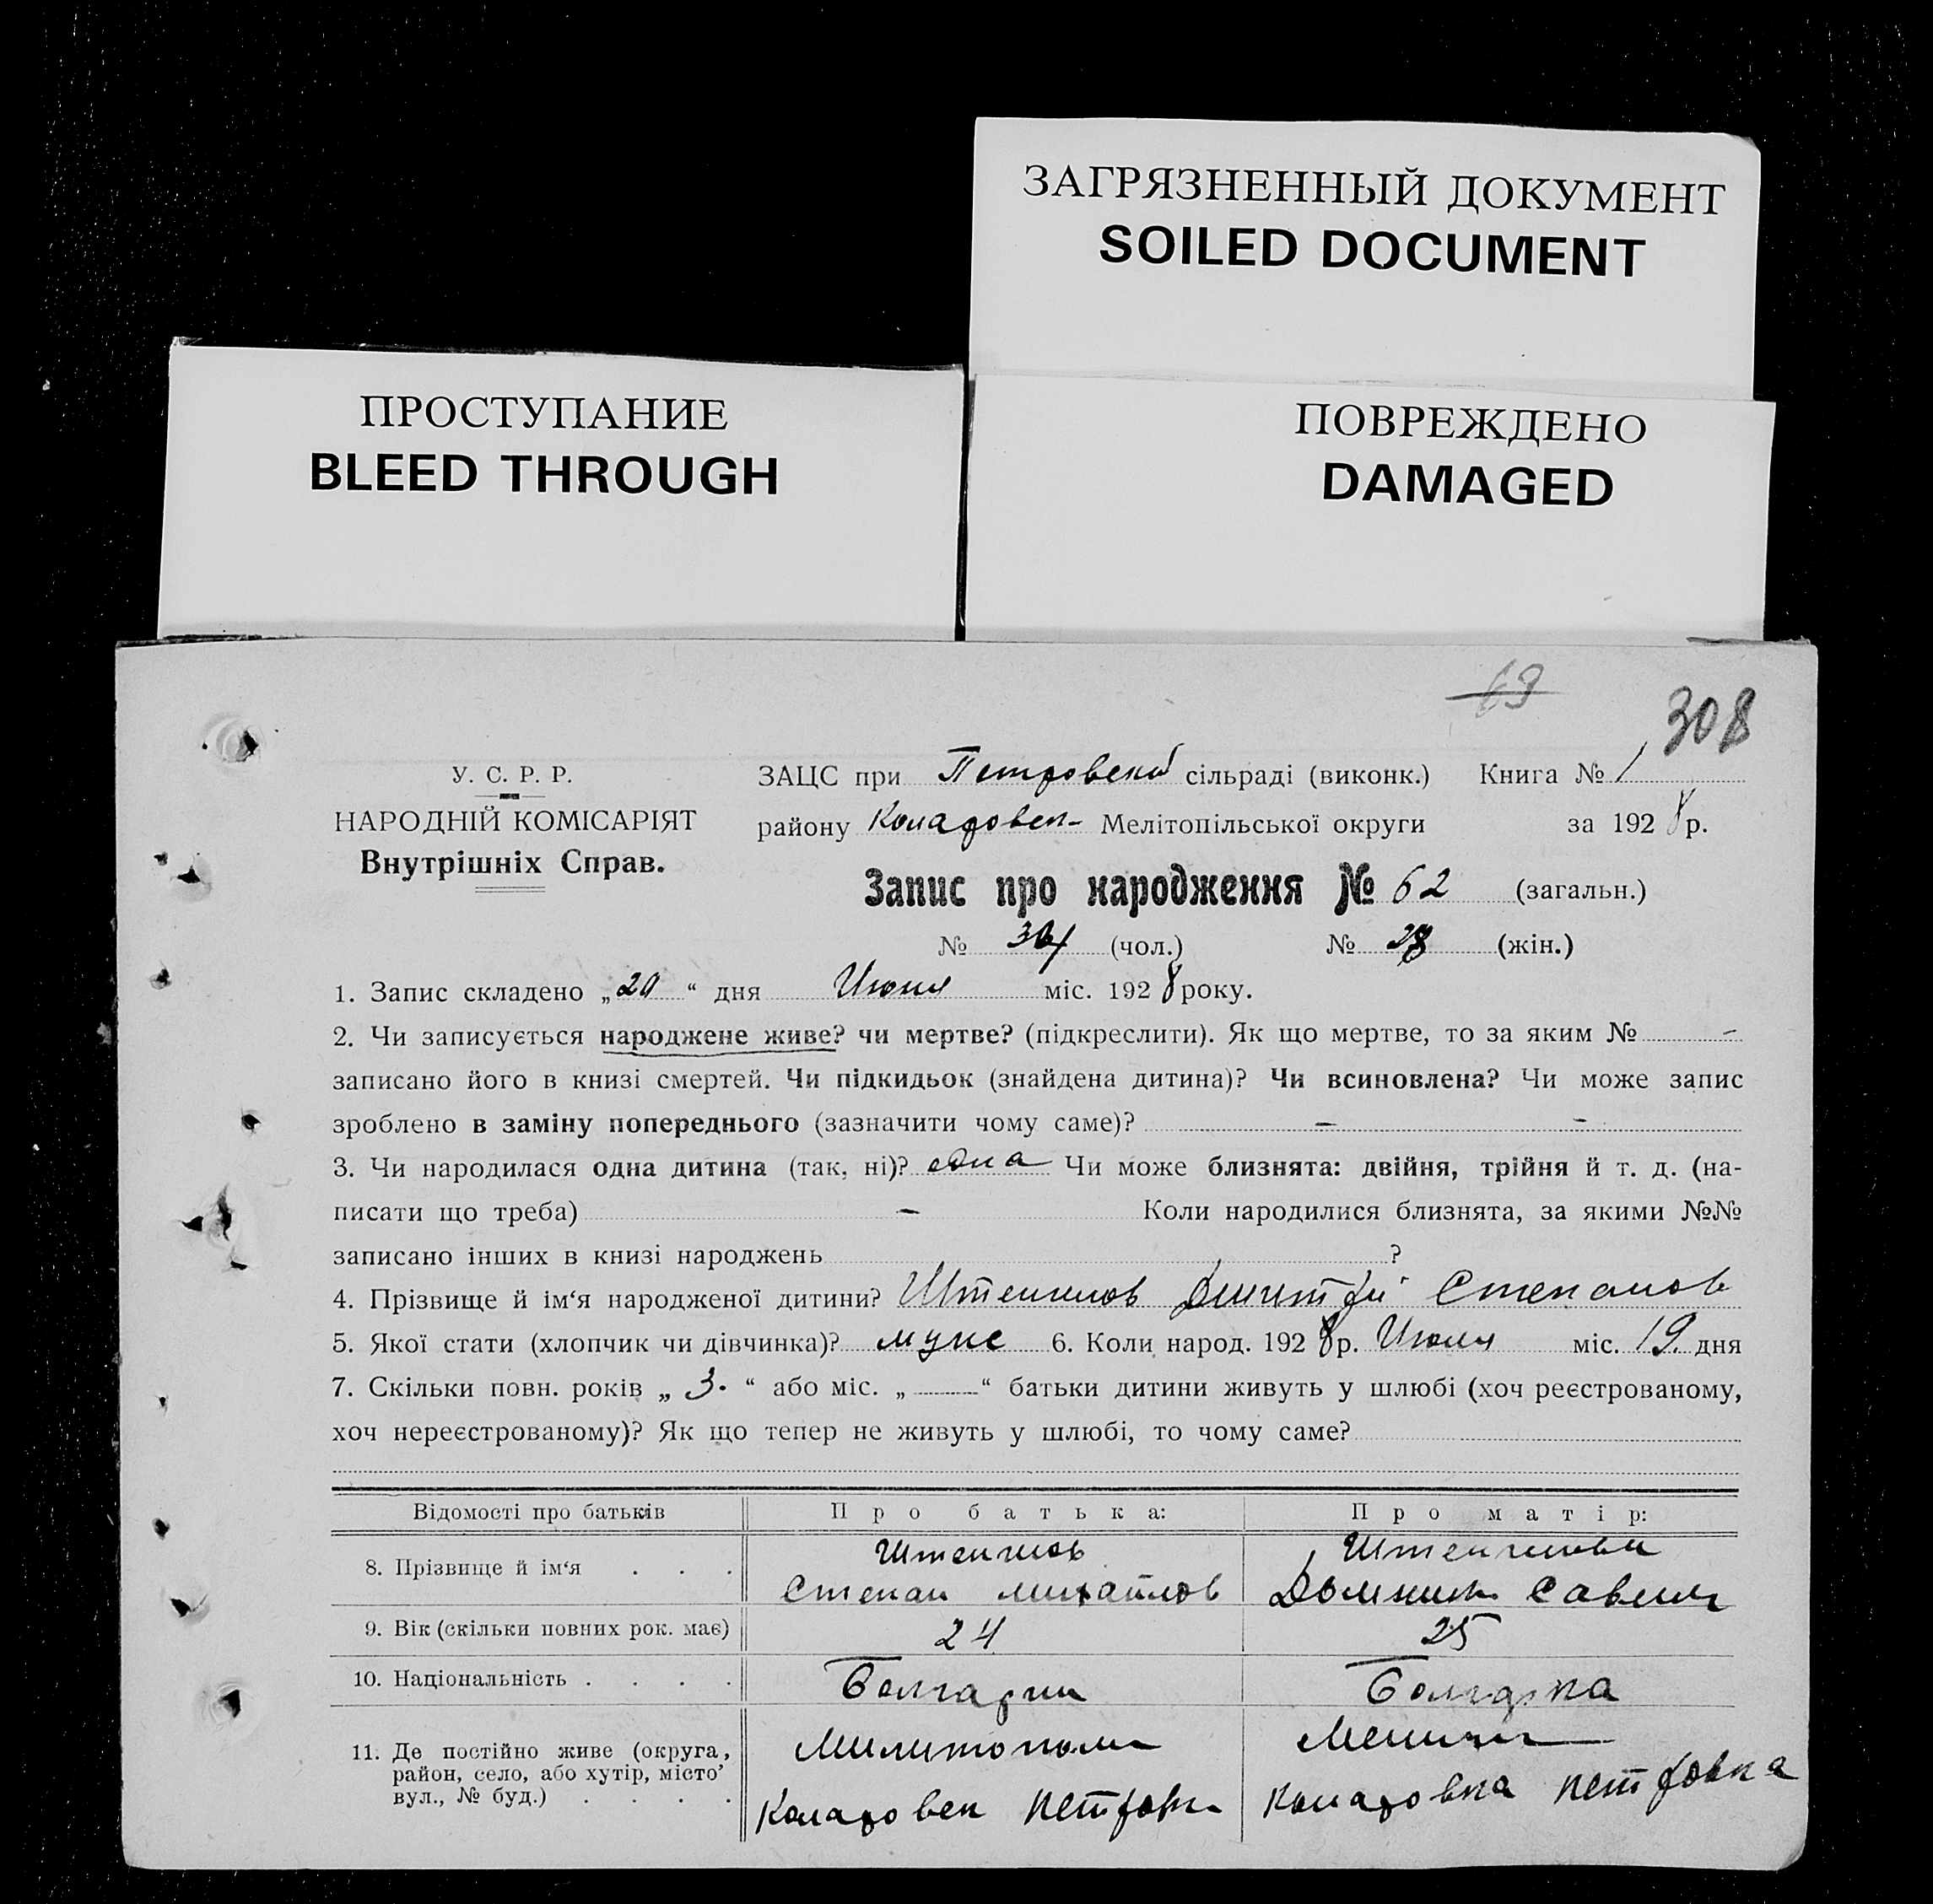 ЗАГРЯЗНЕННЫЙ ДОКУМЕНТ
SOILED DOCUMENT
ПРОСТУПАНИЕ
BLEED THROUGH
ПОВРЕЖДЕНО
DAMAGED
69
308
У. С. Р. Р.
НАРОДНІЙ КОМІСАРІЯТ
Внутрішніх Справ.
ЗАЦС при Петровской сільраді (виконк.) Книга № 1
району Коларовск- Мелітопільської округи за 1928 р.
Запис про народження № 62 (загальн.)
№ 34 (чол.) № 28 (жін.)
1. Запис складено „20“ дня Июля міс. 1928 року.
2. Чи записується народжене живе? чи мертве? (підкреслити). Як що мертве, то за яким № -
записано його в книзі смертей. Чи підкидьок (знайдена дитина)? Чи всиновлена? Чи може запис
зроблено в заміну попереднього (зазначити чому саме)? - -
3. Чи народилася одна дитина (так, ні)? одна Чи може близнята: двійня, трійня й т. д. (на-
писати що треба) - Коли народилися близнята, за якими №№
записано інших в книзі народжень ?
4. Прізвище й ім‘я народженої дитини? Дмитрий Степанов
5. Якої стати (хлопчик чи дівчинка)? муже 6. Коли народ. 1928 р. Июля міс. 19. дня
7. Скільки повн. років „ 3. “ або міс. „ — “ батьки дитини живуть у шлюбі (хоч реєстрованому,
хоч нереєстрованому)? Як що тепер не живуть у шлюбі, то чому саме?
Відомості про батьків Про батька: Про матір:
8. Прізвище й ім‘я . . .
Степан Михайлов
9. Вік (скільки повних рок. має) 24 25
10. Національність . . . . Болгарин Болгарка
11. Де постійно живе (округа,
район, село, або хутір, місто’
вул., № буд.) . . . .
Коларовск Петровка Коларовка Петровка